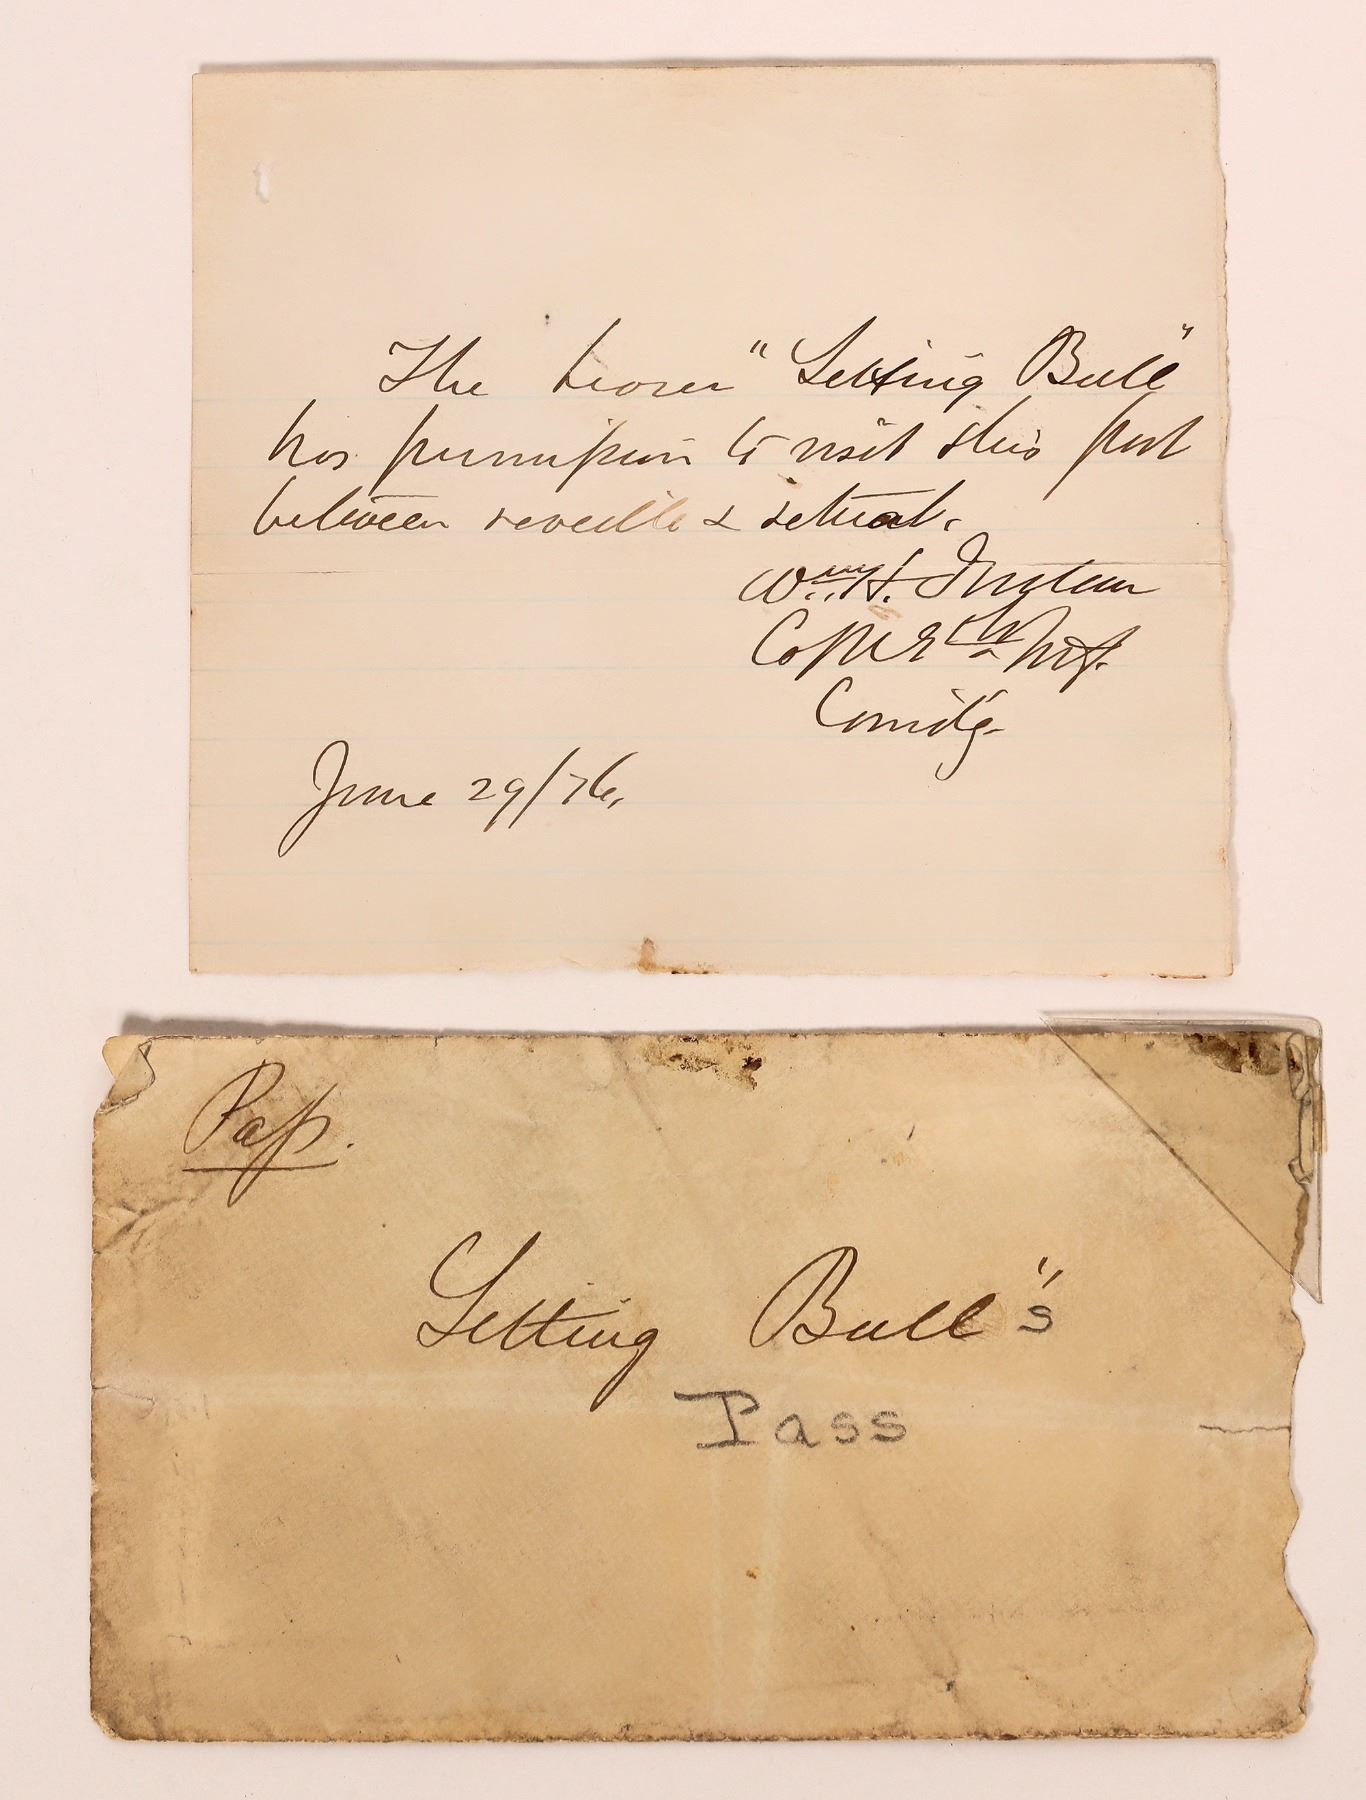 The bearer "Setting Bull"
has permission to visit this post
between reveille & retreat.
Wm. H.
Inf.
Comd'g.
June 29/76.
Pass.
Setting Bull"s
Pass